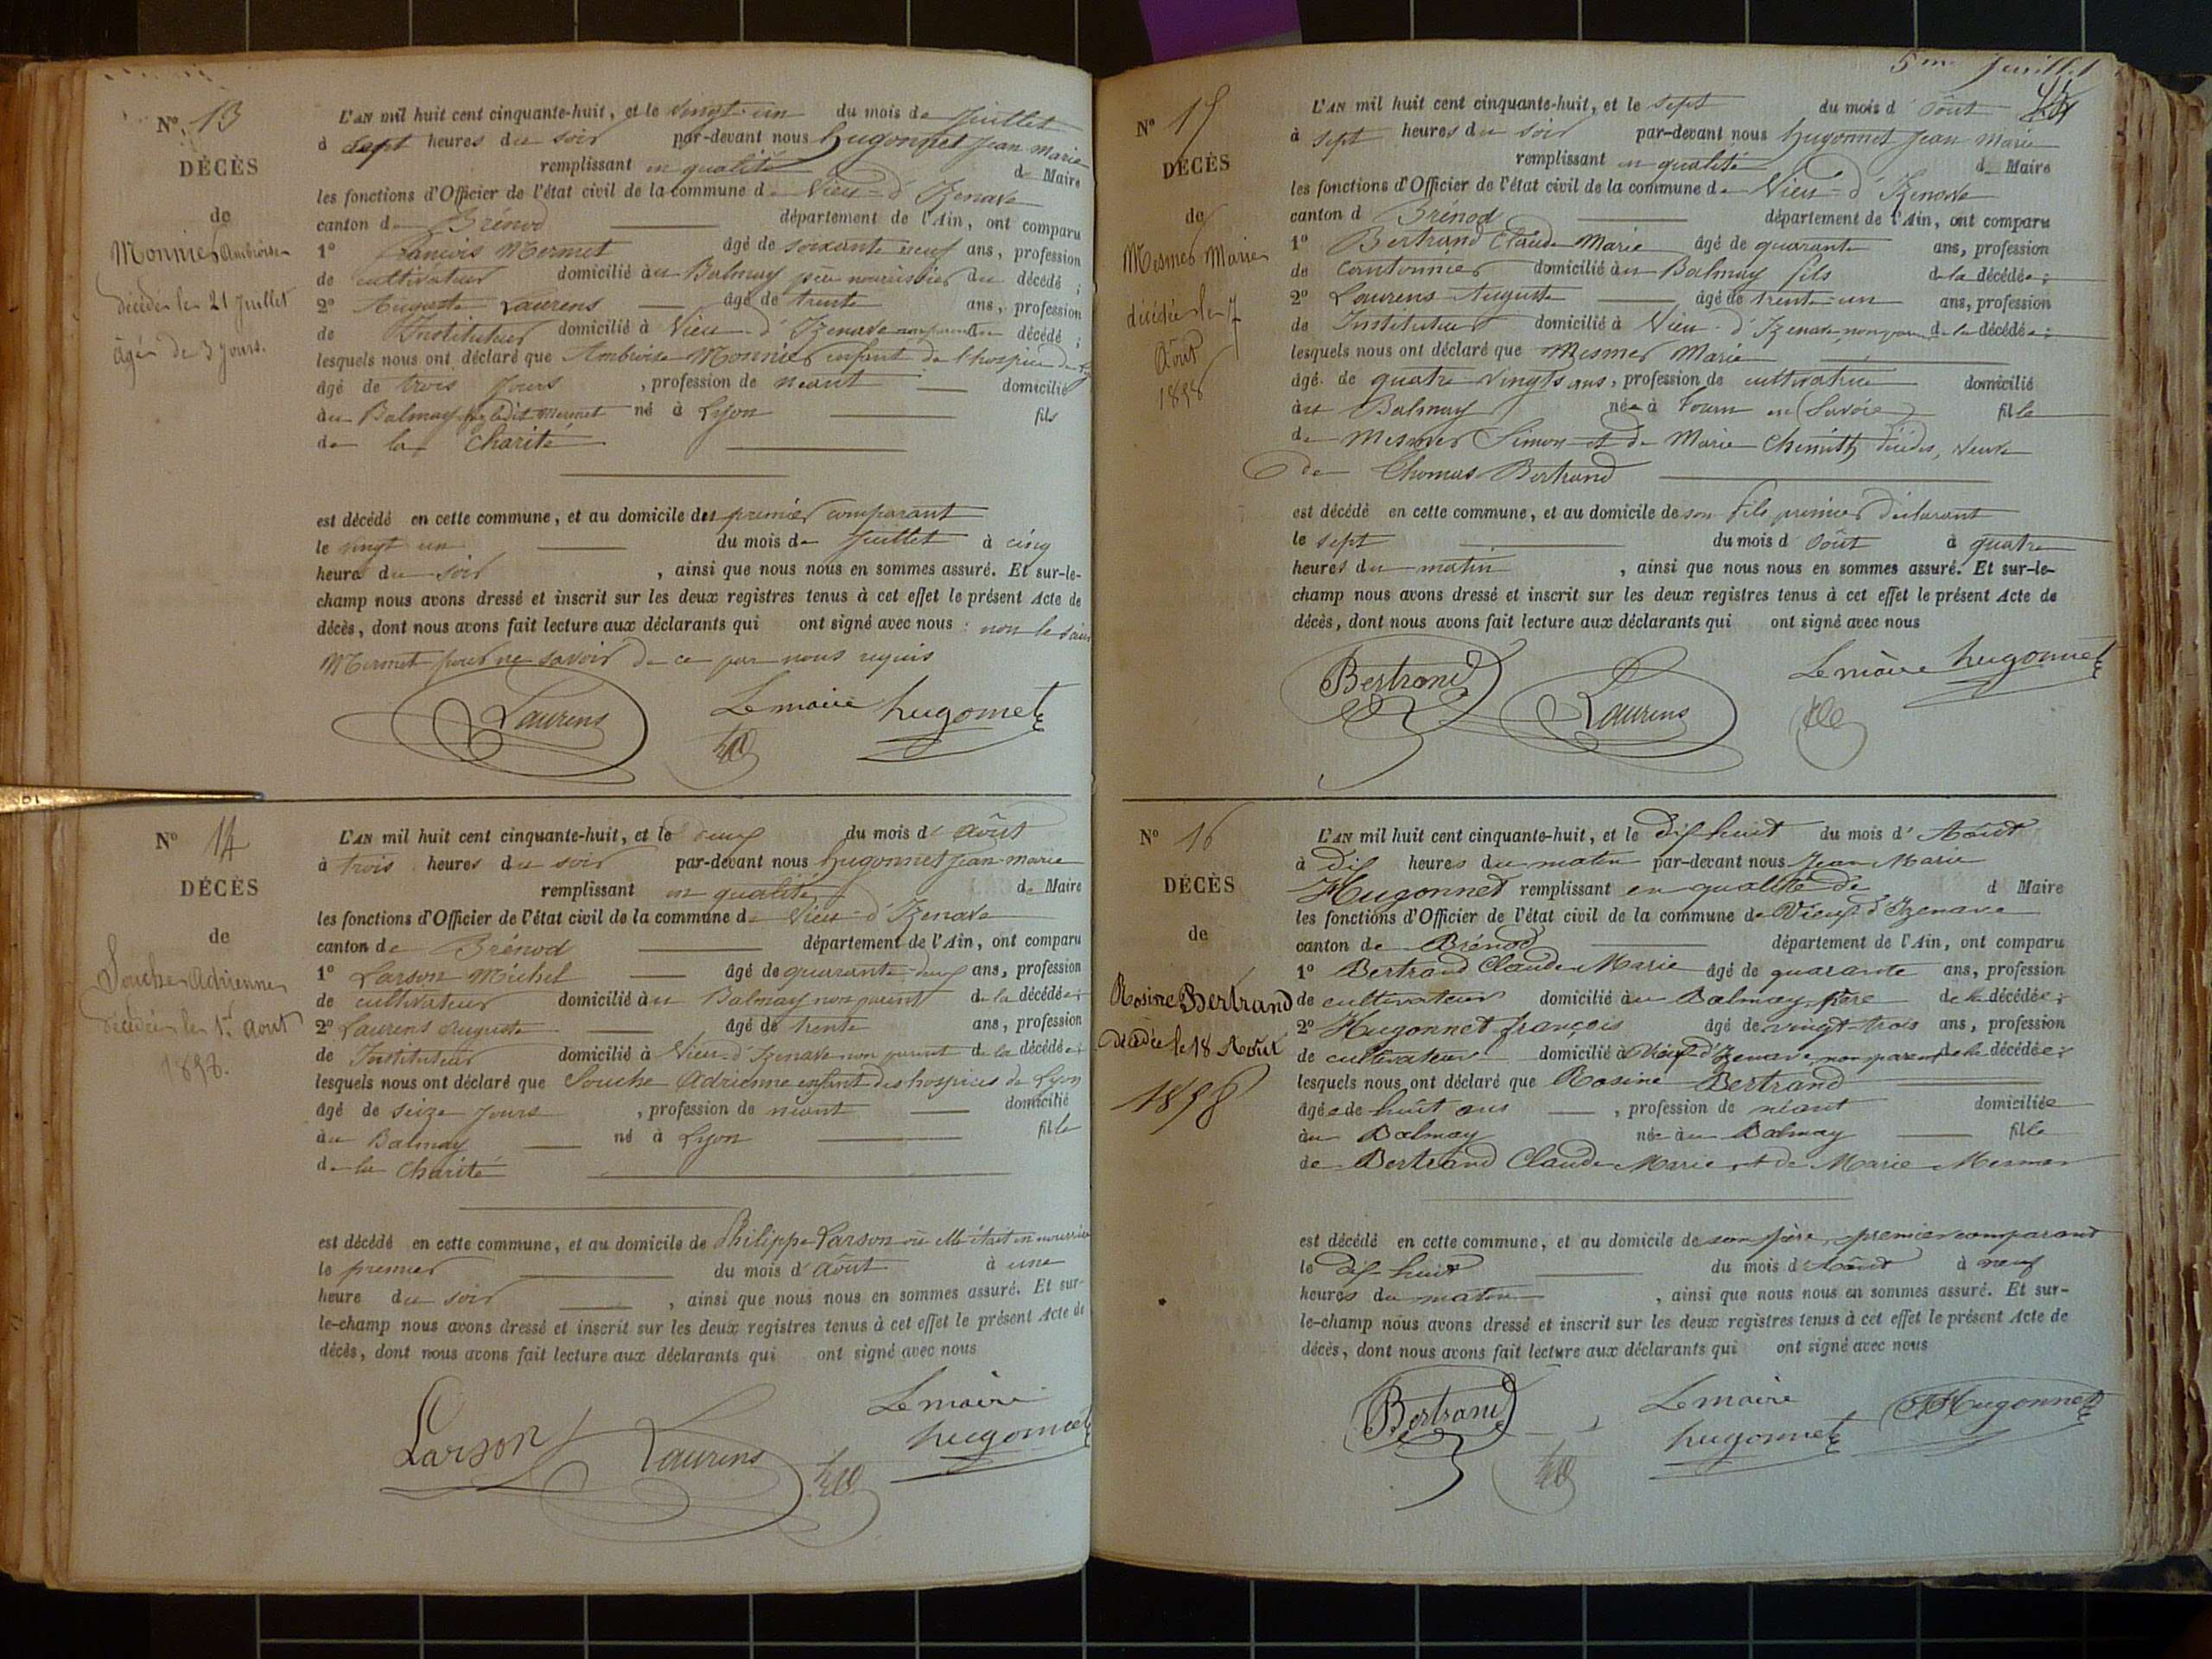 N° 13
DÉCÈS
de
Monnier Ambroise
décédé le 21 Juillet
âgé de 3 jours.
L'AN mil huit cent cinquante-huit, et le vingt-un du mois de Juillet
à sept heures du soir par-devant nous hugonnet jean marie
remplissant en qualité de Maire
les fonctions d'Officier de l'état civil de la commune de Vieu-d'Izenave
canton de Brénod département de l'Ain, ont comparu
1° francois Mermet âgé de soixante neuf ans, profession
de cultivateur domicilié au Balmay père nourricier du décédé ;
2° Auguste Laurens âgé de trente ans, profession
de Instituteur domicilié à Vieu-d'Izenave non parent du décédé ;
lesquels nous ont déclaré que Ambroise Monnier enfant de l'hospice de
âgé de trois jours , profession de néant domicilié
au Balmay Mermet né à Lyon fils
de la Charité
est décédé en cette commune, et au domicile du premier comparant
le vingt un du mois de Juillet à cinq
heures du soir , ainsi que nous nous en sommes assuré. Et sur-le-
champ nous avons dressé et inscrit sur les deux registres tenus à cet effet le présent Acte de
décès, dont nous avons fait lecture aux déclarants qui ont signé avec nous : non le
Mermet pour ne savoir de ce par nous requis
Laurens Le maire hugonnet
N° 14
DÉCÈS
de
Souche Adrienne
décédée le 1er Aout
1858.
L'AN mil huit cent cinquante-huit, et le deux du mois d'Août
à trois heures du soir par-devant nous hugonnet jean-marie
remplissant en qualité de Maire
les fonctions d'Officier de l'état civil de la commune de Vieu-d'Izenave
canton de Brénod département de l'Ain, ont comparu
1° Larson Michel âgé de quarante-deux ans, profession
de cultivateur domicilié au Balmay non parent de la décédée ;
2° Laurens Auguste âgé de trente ans, profession
de Instituteur domicilié à Vieu-d'Izenave non parent de la décédée ;
lesquels nous ont déclaré que Souche Adrienne enfant des hospices de Lyon
âgé de seize jours , profession de néant domicilié
au Balmay né à Lyon fille
de la Charité
est décédé en cette commune, et au domicile de Philippe Larson où elle était en nourrice
le premier du mois d'Août à une
heure du soir , ainsi que nous nous en sommes assuré. Et sur-
le-champ nous avons dressé et inscrit sur les deux registres tenus à cet effet le présent Acte de
décès, dont nous avons fait lecture aux déclarants qui ont signé avec nous
Le maire
Larson Laurens hugonnet
5me Juillet
N° 15
DÉCÈS
de
Mesmer Marie
décédée le 7
Août
1858
L'AN mil huit cent cinquante-huit, et le sept du mois d'Août
à sept heures du soir par-devant nous hugonnet jean marie
remplissant en qualité de Maire
les fonctions d'Officier de l'état civil de la commune de Vieu-d'Izenave
canton d Brénod département de l'Ain, ont comparu
1° Bertrand Claude Marie âgé de quarante ans, profession
de Cantonnier domicilié au Balmay fils de la décédée ;
2° Laurens Auguste âgé de trente-un ans, profession
de Instituteur domicilié à Vieu-d'Izenave de la décédée ;
lesquels nous ont déclaré que Mesmer Marie
âgé de quatre vingts ans, profession de cultivatrice domicilié
au Balmay née à en Savoie fille
de Mesmer Simon et de Marie décédés, veuve
de Thomas Bertrand
est décédé en cette commune, et au domicile de son fils premier déclarant
le sept du mois d'Août à quatre
heures du matin , ainsi que nous nous en sommes assuré. Et sur-le-
champ nous avons dressé et inscrit sur les deux registres tenus à cet effet le présent Acte de
décès, dont nous avons fait lecture aux déclarants qui ont signé avec nous
Bertrand Laurens Le maire hugonnet
N° 16
DÉCÈS
de
Rosine Bertrand
décédée le 18 Août
1858
L'AN mil huit cent cinquante-huit, et le dix huit du mois d'Août
à Dix heures du matin par-devant nous Jean Marie
Hugonnet remplissant en qualité de d Maire
les fonctions d'Officier de l'état civil de la commune de Vieux d'Izenave
canton de Brénod département de l'Ain, ont comparu
1° Bertrand Claude Marie âgé de quarante ans, profession
de cultivateur domicilié au Balmay, père de la décédée ;
2° Hugonnet françois âgé de vingt-trois ans, profession
de cultivateur domicilié à Vieux d'Izenave non parent de la décédée ;
lesquels nous ont déclaré que Rosine Bertrand
âgée de huit ans , profession de néant domiciliée
au Balmay née au Balmay fille
de Bertrand Claude Marie et de Marie Mermet
est décédé en cette commune, et au domicile de son père, premier comparant
le dix-huit du mois d'Août à neuf
heures du matin , ainsi que nous nous en sommes assuré. Et sur-
le-champ nous avons dressé et inscrit sur les deux registres tenus à cet effet le présent Acte de
décès, dont nous avons fait lecture aux déclarants qui ont signé avec nous
Bertrand Le maire hugonnet Hugonnet